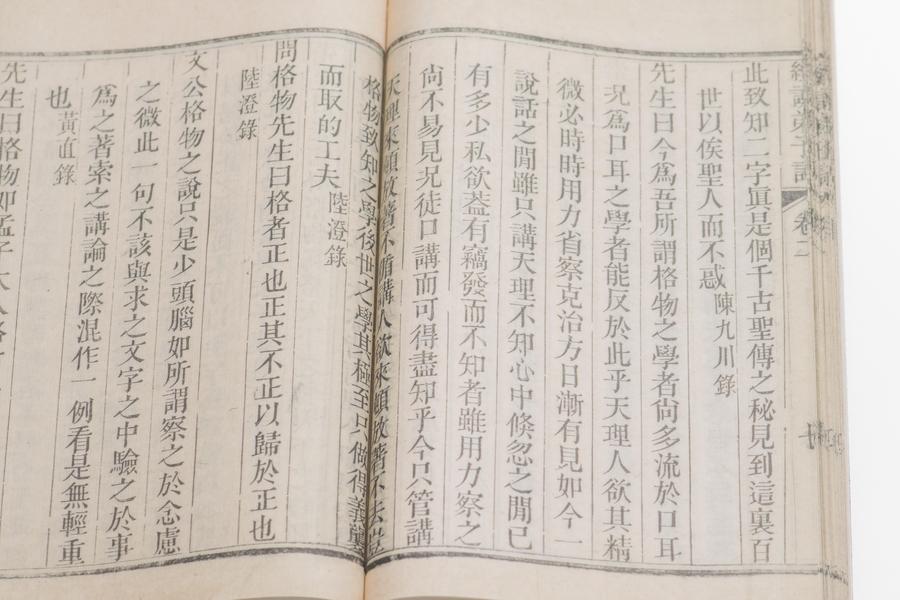 此致知二字眞是個千古聖傳之秘見到這裏百
世以俟聖人而不惑陳九川錄
先生曰今爲吾所謂格物之學者尙多流於口耳
況爲口耳之學者能反於此乎天理人欲其精
微必時時用力省察克治方日漸有見如今一
說話之閒雖只講天理不知心中倏忽之閒已
有多少私欲蓋有竊發而不知者雖用力察之
尙不易見況徒口講而可得盡知乎今只管講
天理來頓放著不循講人欲來頓放著不去豈
格物致知之學後世之學其極至只做得義襲
而取的工夫陸澄錄
問格物先生曰格者正也正其不正以歸於正也
陸澄錄
文公格物之說只是少頭腦如所謂察之於念慮
之微此一句不該與求之文字之中驗之於事
爲之著索之講論之際混作一例看是無輕重
也黃直錄
先生曰格物如孟子大人格
卷二